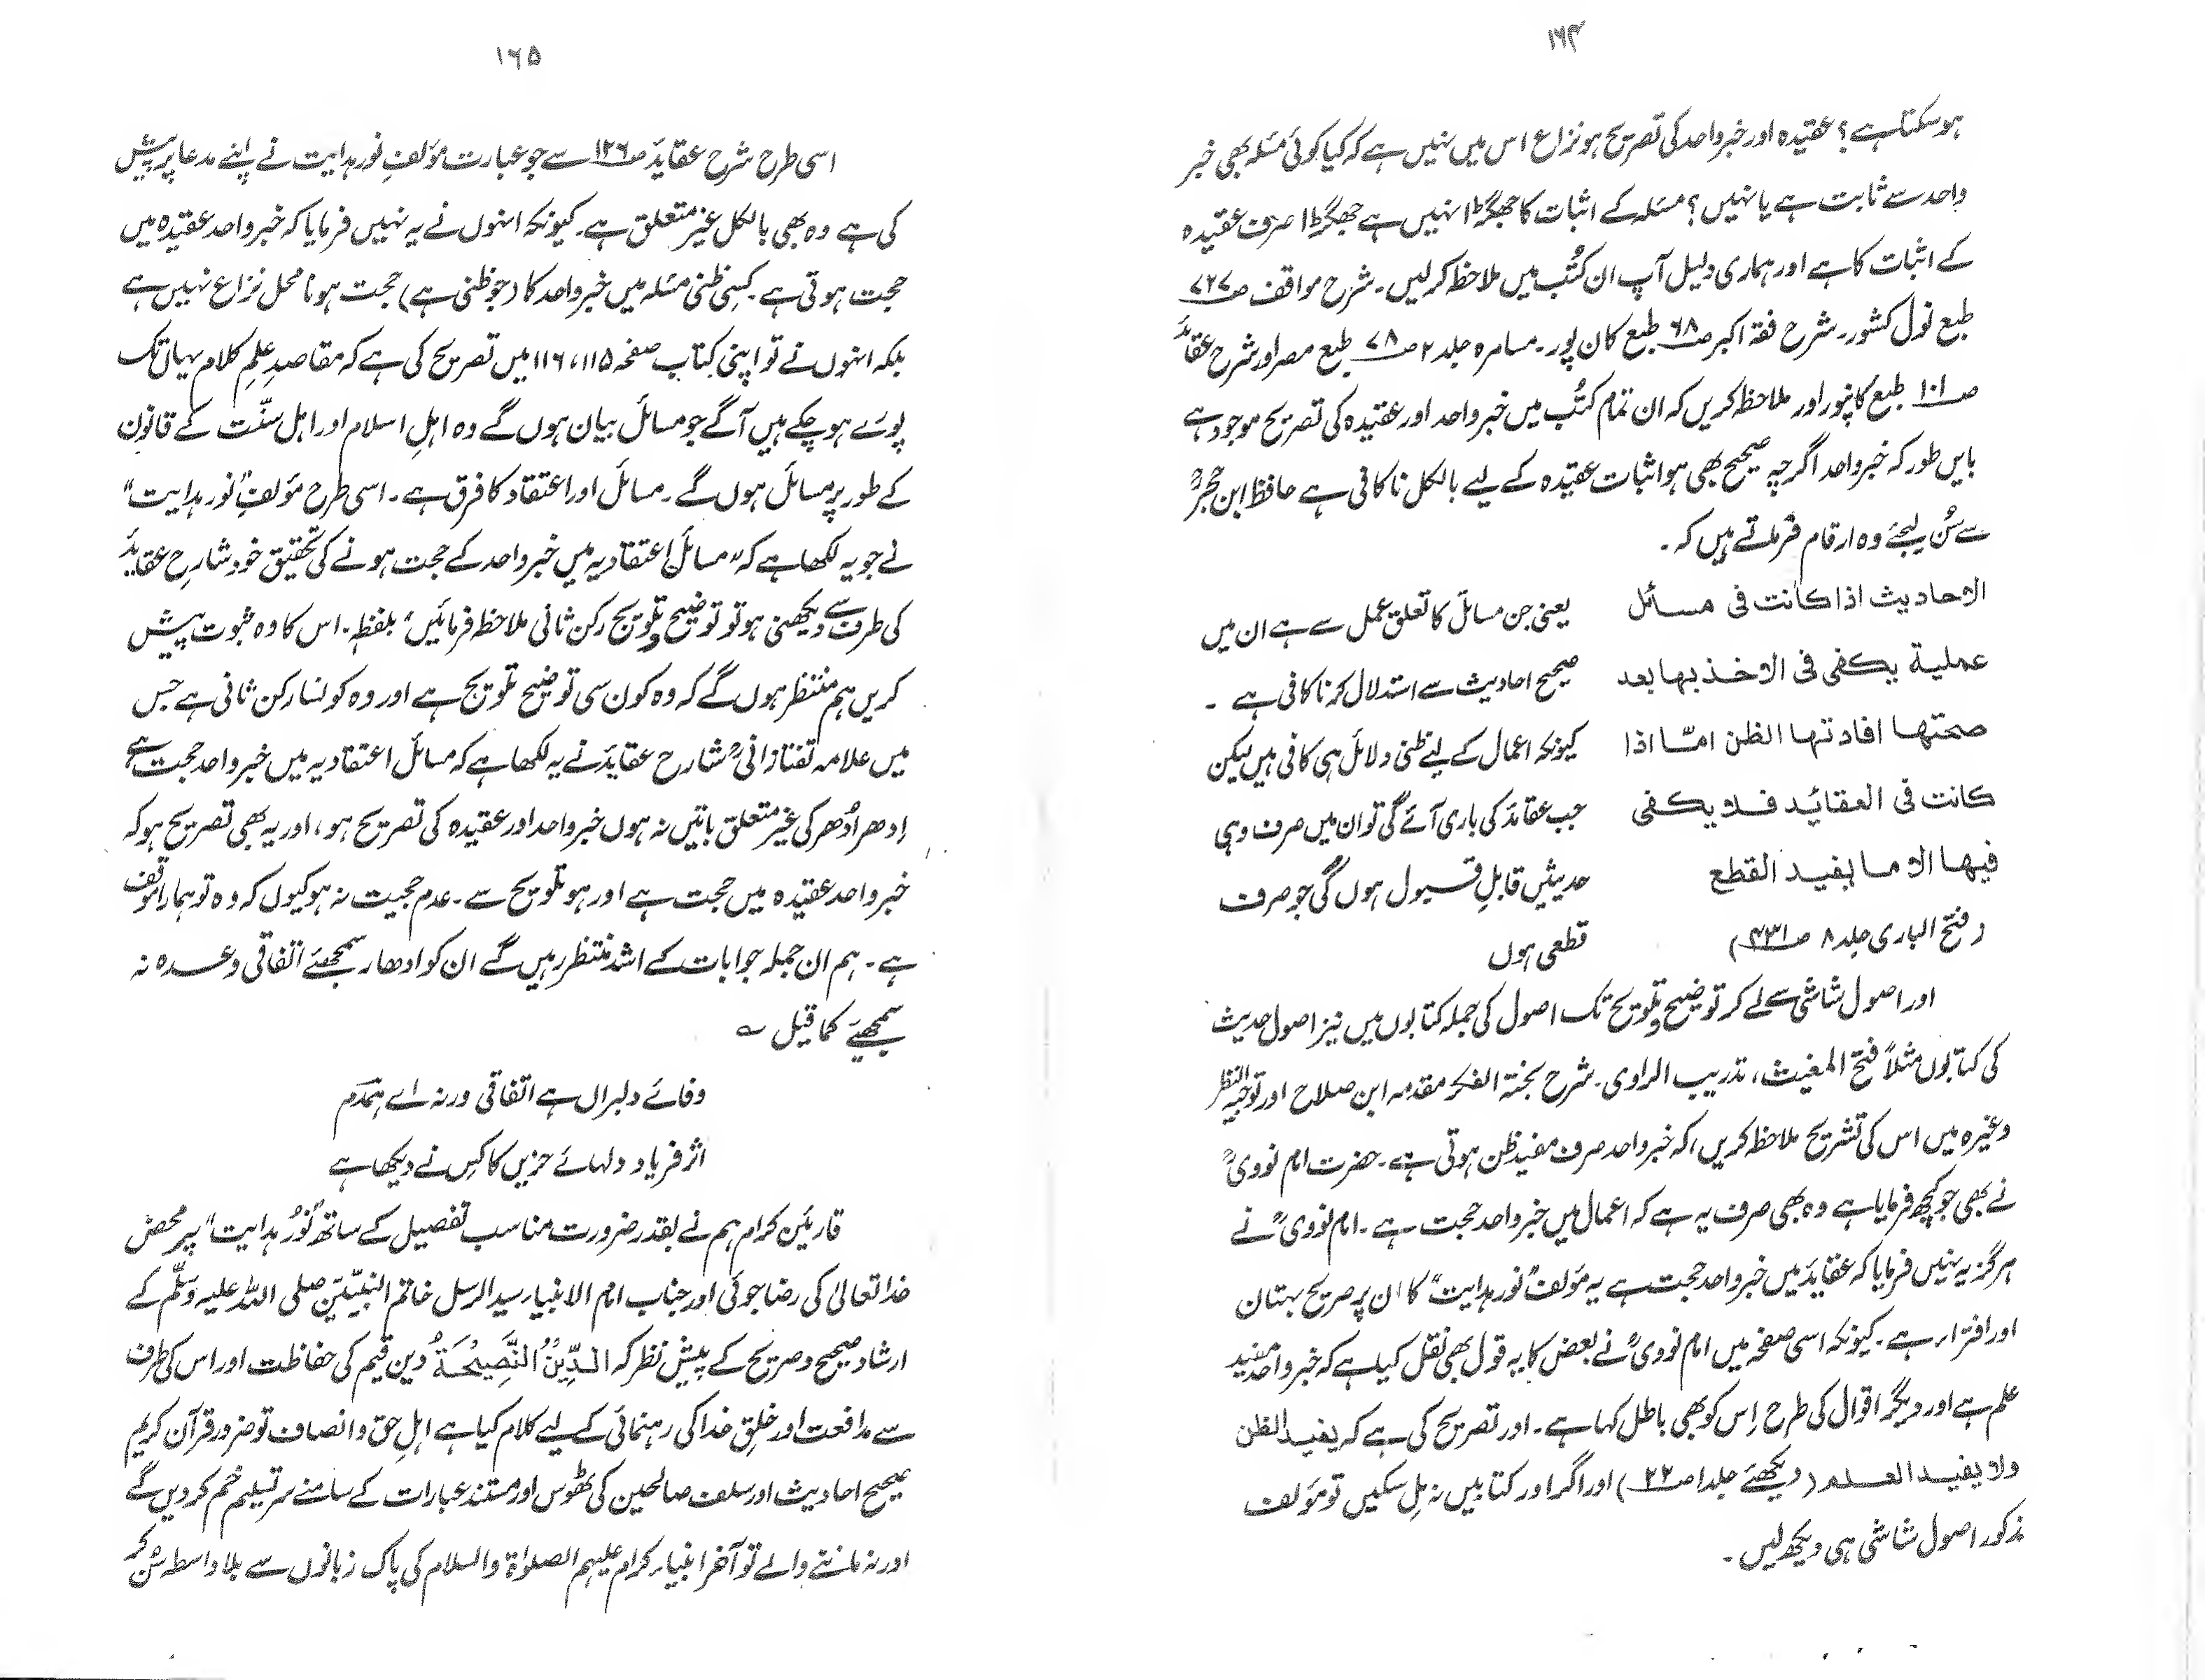 ۱۶۴
ہوسکتا ہے؟ عقیدہ اور خبر واحد کی تصریح ہو نزاع اس میں نہیں ہے کہ کیا کوئی مسئلہ بھی خبر
واحد سے ثابت ہے یا نہیں؟ مسئلہ کے اثبات کا جھگڑا نہیں ہے جھگڑا صرف عقیدہ
کے اثبات کا ہے اور ہماری دلیل آپ ان کُتُب میں ملاحظہ کرلیں۔ شرح مواقف ص۷۲۷
طبع نول کشور۔ شرح فقہ اکبر ص۶۸ طبع کان پور۔ مسامرہ جلد ۲ ص۷۸ طبع مصر اور شرح عقائد
ص۱۰۱ طبع کانپور اور ملاحظہ کریں کہ ان تمام کتُب میں خبر واحد اور عقیدہ کی تصریح موجود ہے
بایں طور کہ خبر واحد اگرچہ صحیح بھی ہو اثبات عقیدہ کے لیے بالکل ناکافی ہے حافظ ابن حجرؒ
سے سُن لیجئے وہ ارقام فرماتے ہیں کہ۔
الاحادیث اذا کانت فی مسائل
عملیة یکفی فی الاخذ بہا بعد
صحتہا افادتہا الظن امّا اذا
کانت فی العقائید فلا یکفی
فیہا الا ما یفید القطع
(فتح الباری جلد ۸ ص۴۳۱)
یعنی جن مسائل کا تعلق عمل سے ہے ان میں
صحیح احادیث سے استدلال کرنا کافی ہے۔
کیونکہ اعمال کے لیے ظنی دلائل ہی کافی ہیں لیکن
جب عقائد کی باری آئے گی تو ان میں صرف وہی
حدیثیں قابلِ قبول ہوں گی جو صرف
قطعی ہوں
اور اصول شاشی سے لے کر توضیح و تلویح تک اصول کی جملہ کتابوں میں نیز اصول حدیث
کی کتابوں مثلاً فتح المغیث، تدریب الراوی۔ شرح نخبۃ الفکر مقدمہ ابن صلاح اور توجیہ النظر
وغیرہ میں اس کی تشریح ملاحظہ کریں، کہ خبر واحد صرف مفید ظن ہوتی ہے۔ حضرت امام نوویؒ
نے بھی جو کچھ فرمایا ہے وہ بھی صرف یہ ہے کہ اعمال میں خبر واحد حجت ہے۔ امام نوویؒ نے
ہرگز یہ نہیں فرمایا کہ عقاید میں خبر واحد حجت ہے یہ مؤلف "نور ہدایت" کا ان پر صریح بہتان
اور افترا ہے۔ کیونکہ اسی صفحہ میں امام نوویؒ نے بعض کا یہ قول بھی نقل کیا ہے کہ خبر واحد مفید
علم ہے اور دیگر اقوال کی طرح اِس کو بھی باطل کہا ہے۔ اور تصریح کی ہے کہ یفید الظن
ولا یفید العلم (دیکھئے جلد ا ص۲۲) اور اگر اور کتابیں نہ مِل سکیں تو مؤلف
مذکور اصول شاشی ہی دیکھ لیں۔
۱۶۵
اسی طرح شرح عقاید ص۱۲۶ سے جو عبارت مؤلفِ نور ہدایت نے اپنے مدعا پر پیش
کی ہے وہ بھی بالکل غیر متعلق ہے۔ کیونکہ انہوں نے یہ نہیں فرمایا کہ خبر واحد عقیدہ میں
حجت ہوتی ہے۔ کسِی ظنی مسئلہ میں خبر واحد کا (جو ظنی ہے) حجت ہونا محل نزاع نہیں ہے
بلکہ انہوں نے تو اپنی کتاب صفحہ ۱۱۵، ۱۱۶ میں تصریح کی ہے کہ مقاصدِ علِم کلام یہاں تک
پورے ہو چکے ہیں آگے جو مسائل بیان ہوں گے وہ اہلِ اسلام اور اہل سنّت کے قانون
کے طور پر مسائل ہوں گے۔ مسائل اور اعتقاد کا فرق ہے۔ اسی طرح مؤلفِ "نور ہدایت"
نے جو یہ لکھا ہے کہ "مسائل اعتقادیہ میں خبر واحد کے حجت ہونے کی تحقیق خود شارح عقاید
کی طرف سے دیکھنی ہو تو توضیح و تلویح رکن ثانی ملاحظہ فرمائیں" بلفظہٖ۔ اس کا وہ ثبوت پیش
کریں ہم منتظر ہوں گے کہ وہ کون سی توضیح تلویح ہے اور وہ کونسا رکن ثانی ہے جس
میں علامہ تفتازانیؒ شارح عقاید نے یہ لکھا ہے کہ مسائل اعتقادیہ میں خبر واحد حجت ہے
اِدھر اُدھر کی غیر متعلق باتیں نہ ہوں خبر واحد اور عقیدہ کی تصریح ہو، اور یہ بھی تصریح ہو کہ
خبر واحد عقیدہ میں حجت ہے اور ہو تلویح سے۔ عدم حجیت نہ ہو کیوں کہ وہ تو ہمارا مؤقف
ہے۔ ہم ان جملہ جوابات کے اشد منتظر رہیں گے ان کو ادھار سمجھئے اتفاقی وعدہ نہ
سمجھیئے کما قیل ؎
وفائے دلبراں ہے اتفاقی ورنہ اے ہمدم
اثر فریاد دلہائے حزیں کا کِس نے دیکھا ہے
قارئین کرام ہم نے بقدر ضرورت مناسب تفصیل کے ساتھ "نورُ ہدایت" پر محض
خدا تعالیٰ کی رضا جوئی اور جناب امام الانبیاء سید الرسل خاتم النبیّین صلی اللہ علیہ وسلّم کے
ارشاد صحیح و صریح کے پیش نظر کہ الدِّیْنُ النَّصِیْحَةُ دین قیم کی حفاظت اور اس کی طرف
سے مدافعت اور خلِق خدا کی رہنمائی کے لیے کلام کیا ہے اہلِ حق و انصاف تو ضرور قرآن کریم
صحیح احادیث اور سلف صالحین کی ٹھوس اور مستند عبارات کے سامنے سر تسلیم خم کر دیں گے
اور نہ ماننے والے تو آخر انبیاء کرام علیہم الصلوٰۃ والسلام کی پاک زبانوں سے بلا واسطہ سُن کر